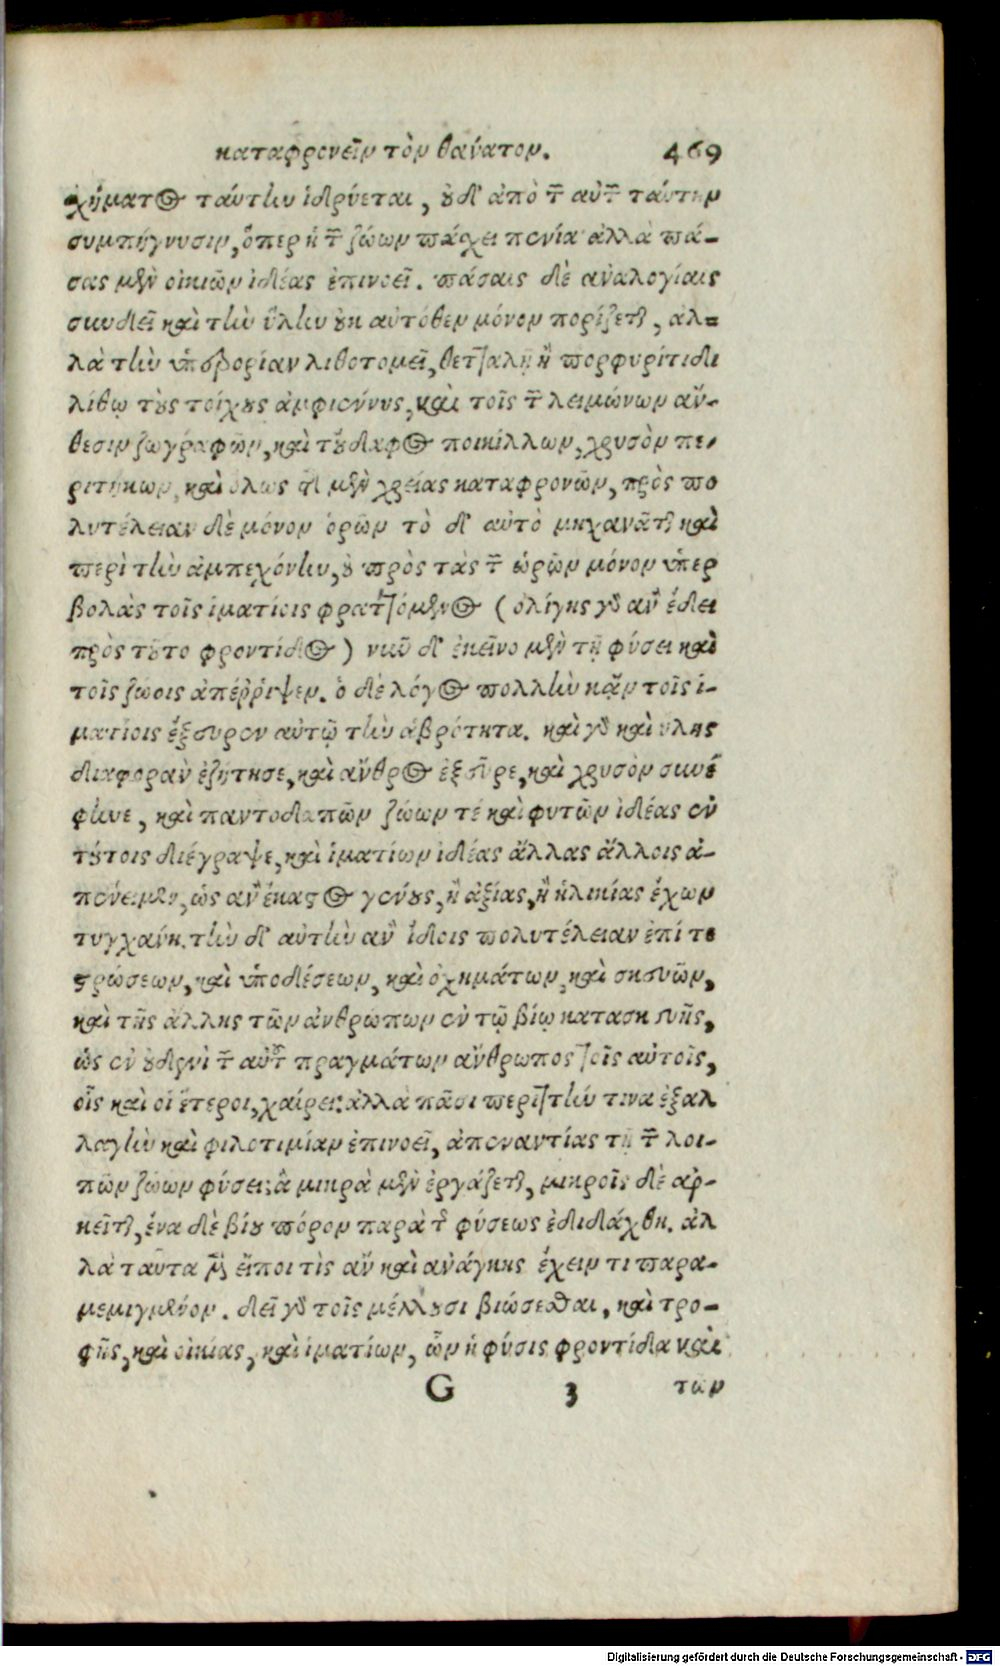 καταφρονεῖν τὸν θάνατον. 469
χήματος ταύτην ἱδρύεται, οὐδ' ἀπὸ τῶν αὐτῶν ταύτην
συμπήγνυσιν, ὅπερ ἡ τῶν ζώων πάσχει πενία· ἀλλὰ πά-
σας μὲν οἰκιῶν ἰδέας ἐπινοεῖ. πάσαις δὲ ἀναλογίαις
συνδεῖ καὶ τὴν ὕλην οὐκ αὐτόθεν μόνον πορίζεται, ἀλ-
λὰ τὴν ὑπερορίαν λιθοτομεῖ, θετταλῇ ἢ πορφυρίτιδι
λίθῳ τοὺς τοίχους ἀμφιεννὺς, καὶ τοῖς τῶν λειμώνων ἄν-
θεσιν ζωγραφῶν, καὶ τοὔδαφος ποικίλλων, χρυσὸν πε-
ριτήκων, καὶ ὅλως τῆς μὲν χρείας καταφρονῶν, πρὸς πο
λυτέλειαν δὲ μόνον ὁρῶν τὸ δ' αὐτὸ μηχανᾶται καὶ
περὶ τὴν ἀμπεχόνην, οὐ πρὸς τὰς τῶν ὡρῶν μόνον ὑπερ
βολὰς τοῖς ἱματίοις φραττόμενος (ὀλίγης γὰρ ἂν ἔδει
πρὸς τοῦτο φροντίδος) νῦν δ' ἐκεῖνο μὲν τῇ φύσει καὶ
τοῖς ζώοις ἀπέῤῥιψεν. ὁ δὲ λόγος πολλὴν κἂν τοῖς ἱ-
ματίοις ἐξεῦρεν αὐτῷ τὴν ἁβρότητα. καὶ γὰρ καὶ ὕλης
διαφορὰν ἐζήτησε, καὶ ἄνθος ἐξεῦρε, καὶ χρυσὸν συνέ
φηνε, καὶ παντοδαπῶν ζώων τὲ καὶ φυτῶν ἰδέας ἐν
τούτοις διέγραψε, καὶ ἱματίων ἰδέας ἄλλας ἄλλοις ἀ-
πένειμεν, ὡς ἂν ἕκαστος γένους, ἢ ἀξίας, ἢ ἡλικίας ἔχων
τυγχάνῃ. τὴν δ' αὐτὴν ἂν ἴδοις πολυτέλειαν ἐπί τε
στρώσεων, καὶ ὑποδέσεων, καὶ ὀχημάτων, καὶ σκευῶν,
καὶ τῆς ἄλλης τῶν ἀνθρώπων ἐν τῷ βίῳ κατασκευῆς,
ὡς ἐν οὐδενὶ τῶν αὐτῶν πραγμάτων ἄνθρωπος τοῖς αὐτοῖς,
οἷς καὶ οἱ ἕτεροι, χαίρει: ἀλλὰ πᾶσι περιττήν τινα ἐξαλ
λαγὴν καὶ φιλοτιμίαν ἐπινοεῖ, ἀπεναντίας τῇ τῶν λοι-
πῶν ζώων φύσει; ἃ μικρὰ μὲν ἐργάζεται, μικροῖς δὲ ἀρ-
κεῖται, ἕνα δὲ βίου πόρον παρὰ τῆς φύσεως ἐδιδάχθη. ἀλ
λὰ ταῦτα μὲν εἴποι τὶς ἂν καὶ ἀνάγκης ἔχειν τι παρα-
μεμιγμένον. δεῖ γὰρ τοῖς μέλλουσι βιώσεσθαι, καὶ τρο-
φῆς, καὶ οἰκίας, καὶ ἱματίων, ὧν ἡ φύσις φροντίδα καὶ
G 3 τῶν
Digitalisierung gefördert durch die Deutsche Forschungsgemeinschaft - DFG